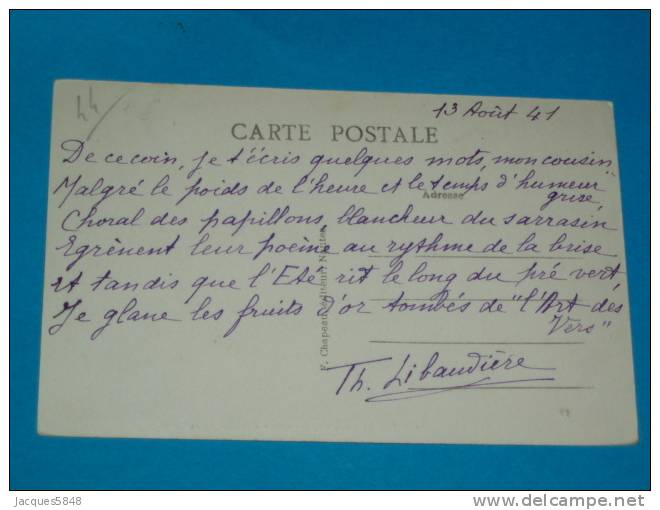 44
13 Août 41
CARTE POSTALE
De ce coin, je t'écris quelques mots, mon cousin
Malgré le poids de l'heure et le temps d'humeur
grise,
Adresse
Choral des papillons, blancheur du sarrasin
Egrènent leur poème au rythme de la brise
et tandis que l'Eté rit le long du pré vert,
Je glane les fruits d'or tombés de "l'Art des
Vers"
Th. Libaudière
F. Chapeau, éditeur, Nantes
Jacques5848
delcampe.net